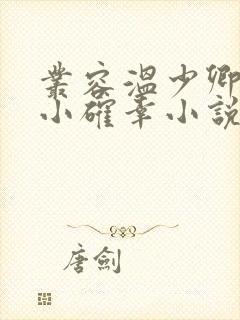 叢容溫少卿
小確幸小說
唐劍